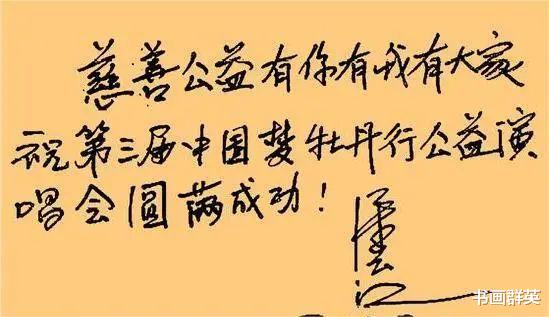 慈善公益有你有我有大家
祝第三届中国梦牡丹行公益演
唱会圆满成功！
书画群英